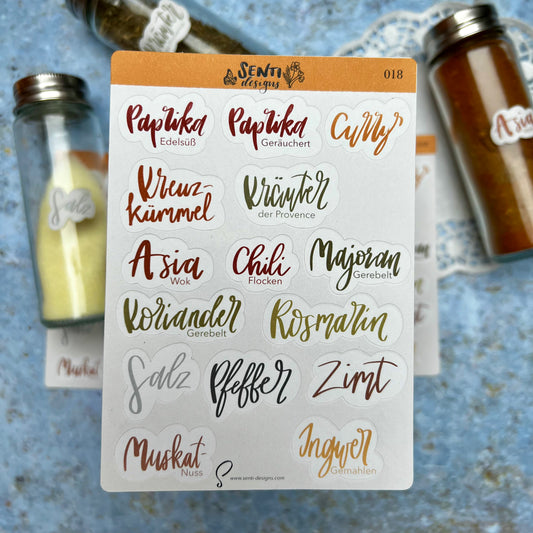 SENTI
designs
018
Paprika
Edelsüß
Paprika
Geräuchert
Curry
Kreuz-
kümmel
Kräuter
der Provence
Asia
Wok
Chili
Flocken
Majoran
Gerebelt
Koriander
Gerebelt
Rosmarin
Salz
Pfeffer
Zimt
Muskat-
Nuss
S
www.senti-designs.com
Ingwer
Gemahlen
Salz
Asia
Muskat